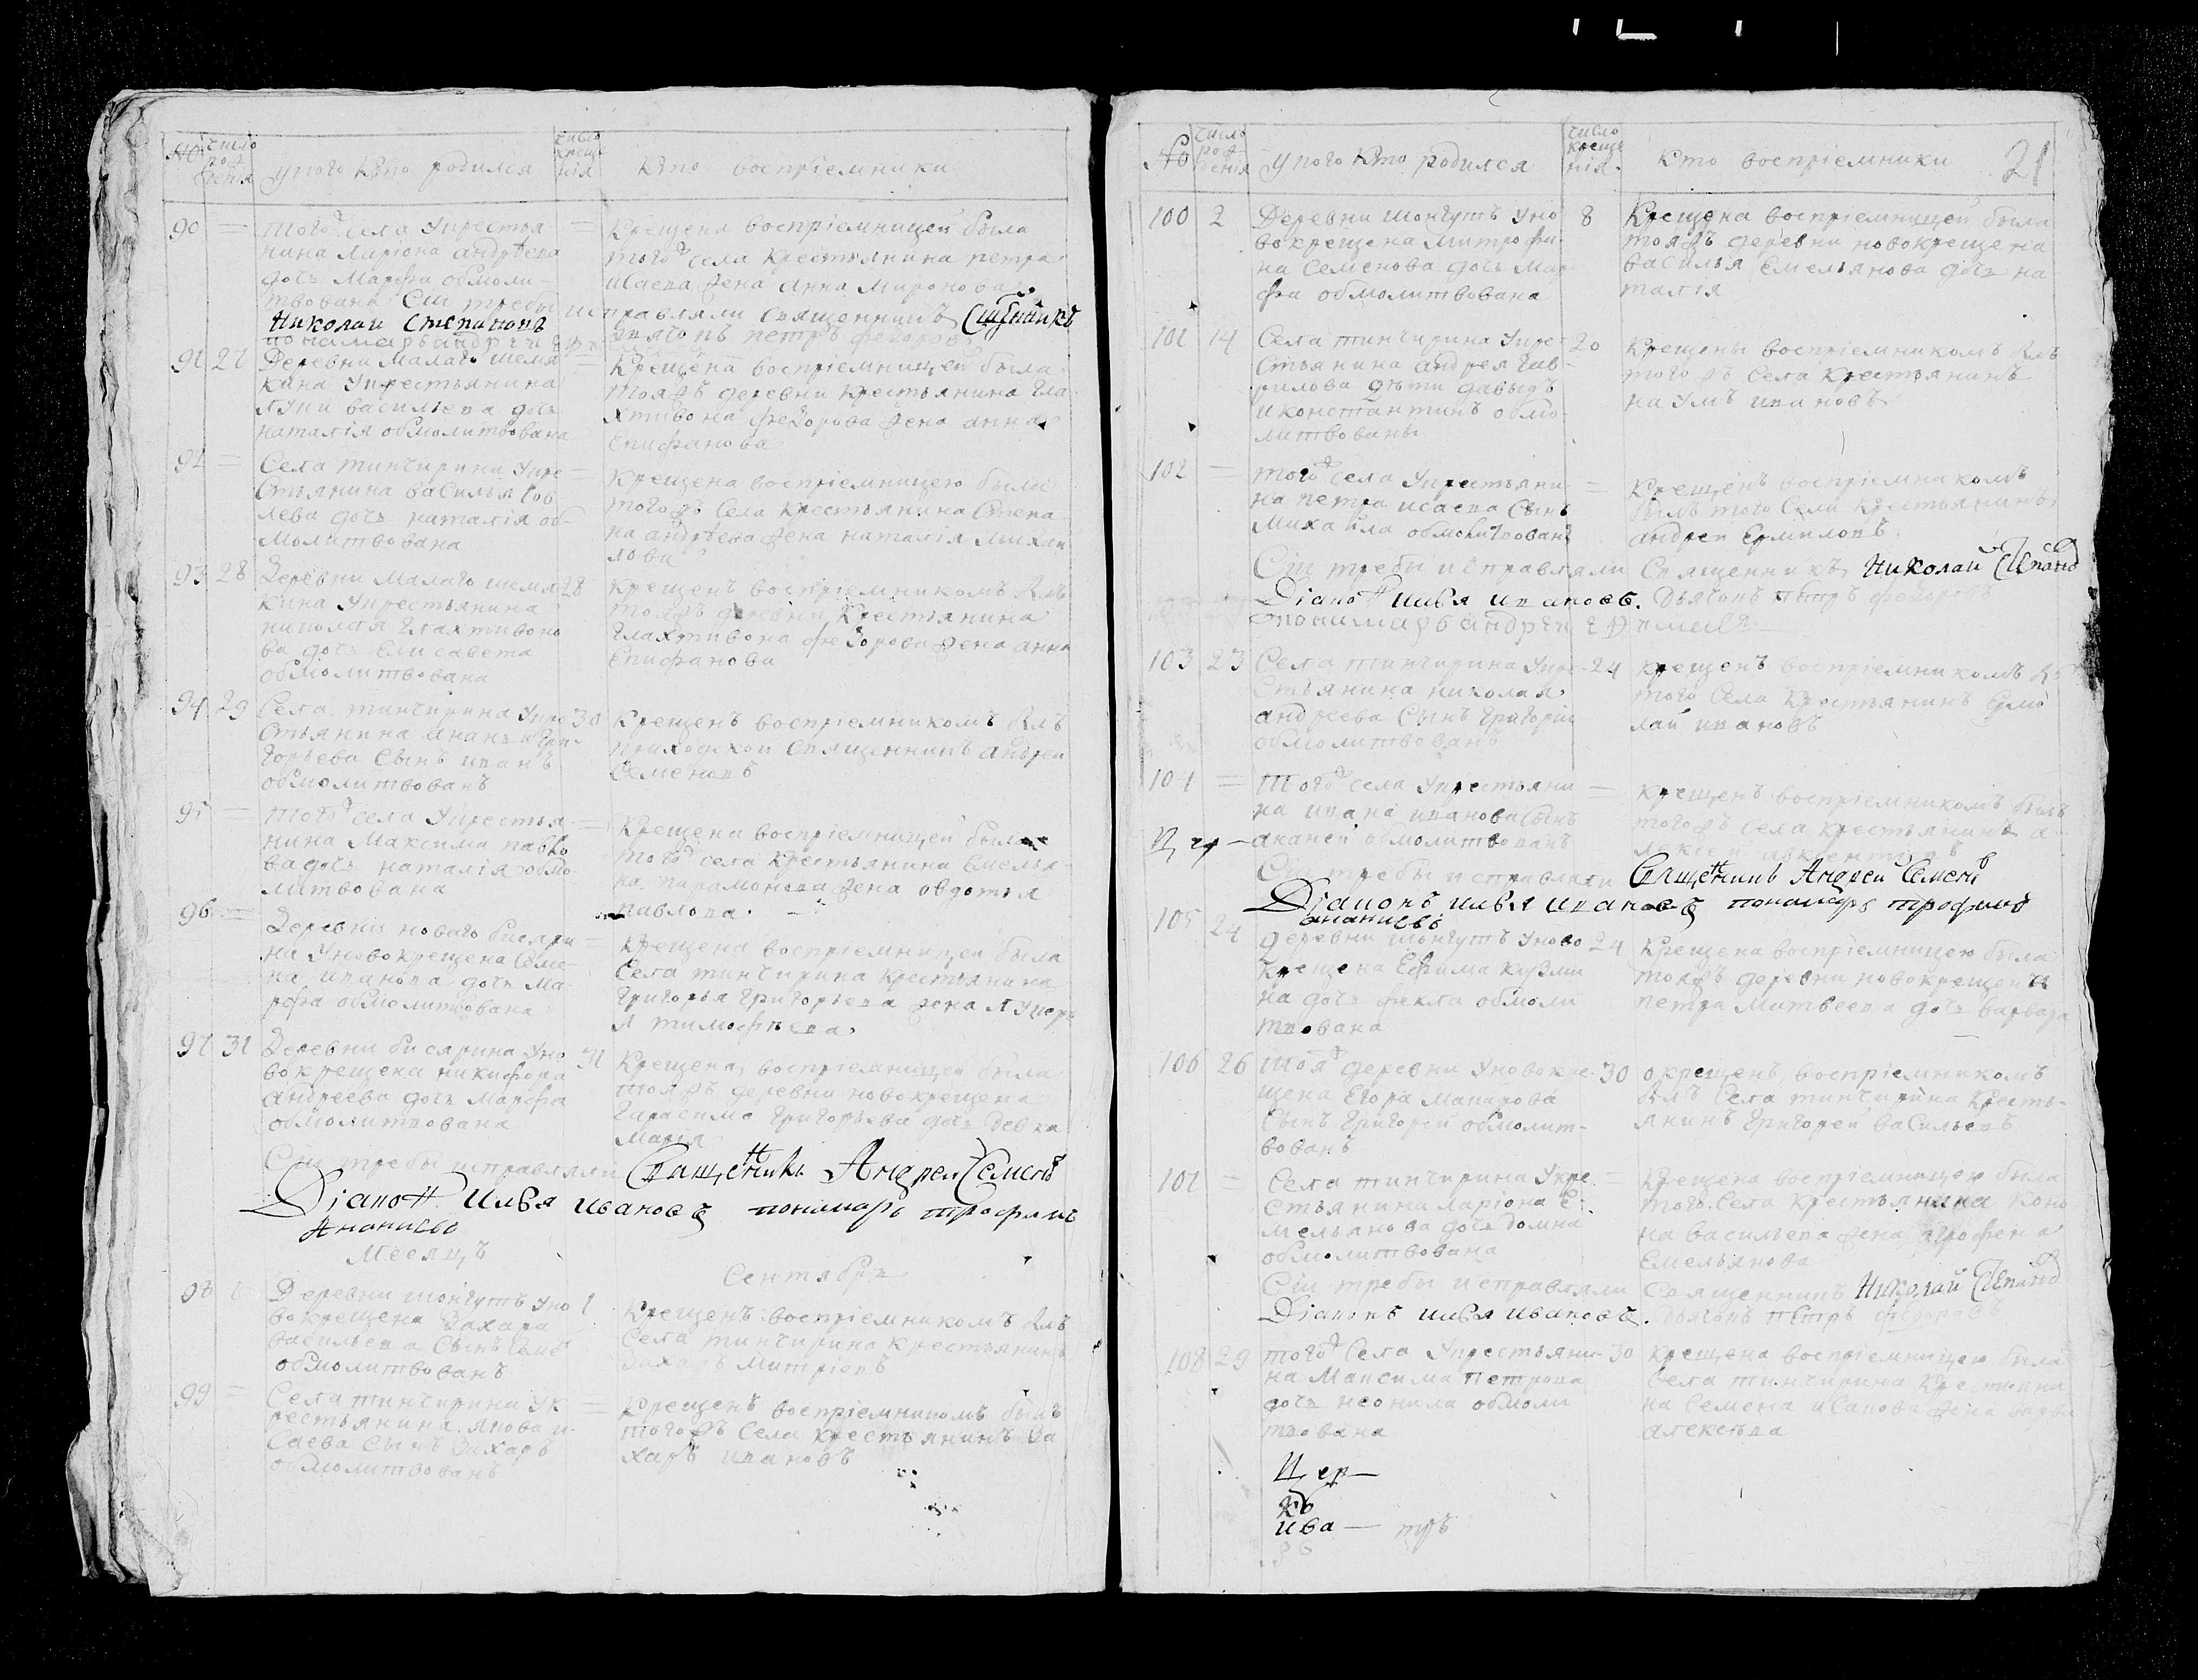 No число рождения у кого кто родился число крещения кто воспріемники
90 = того ж села у крестья
нина Ларіона андрѣева
дочь Марфа обмоли
твована
= Крещена воспріемницей была
того ж села крестьянина петра
исаева жена анна миронова
Сіи требы исправляли Священникъ
Николай Степановъ
діяконъ петръ федоровъ
91 27 Деревни Малаго шемя
кина у крестьянина
луки васильева дочь
наталія обмолитвована
= Крещена воспріемницей была
тояжъ деревни крестьянина гла
хтивона федорова жена анна
Епифанова
92 = Села тинчирина у кре
стьянина василья
лева дочь наталія об
молитвована
= Крещена воспріемницею была
тогожъ села крестьянина степа
на андрѣева жена наталія михаи
лова
93 28 Деревни Малаго шемя
кина у крестьянина
николая глахтивоно
ва дочь Елисавета
обмолитвована
28 крещенъ воспріемникомъ былъ
тояжъ деревни крестьянина
глахтивона федорова жена анна
Епифанова
94 29 Села тинчирина у кре
стьянина ананьи гри
горьева сынъ иванъ
обмолитвованъ
30 Крещенъ воспріемникомъ былъ
приходской священникъ андрей
Семеновъ
95 = того ж села у крестья
нина Максима павло
ва дочь наталія обмо
литвована
= Крещена воспріемницей была
того ж села крестьянина Емелья
на парамонова жена овдотья
павлова
96 = Деревни новаго бисяри
на у новокрещена Семе
на иванова дочь Ма
рфа обмолитвована
= Крещена воспріемницей была
Села тинчирина крестьянина
Григорья Григорьева жена лукерь
я тимофѣева
97 31 Деревни бисярина у но
вокрещена никифора
андреева дочь марфа
обмолитвована
31 Крещена воспріемницей была
тояжъ деревни новокрещена
Гарасима Григорьева дочь девка
марія
Сіи требы исправляли Священникъ Андрей Семеновъ
Діаконъ Илья Ивановъ пономарь трофимъ
Ананьевъ
Месяцъ Сентябрь
98 Деревни шонгутъ у но
вокрещена Захара
васильева сынъ
обмолитвованъ
1 Крещенъ воспріемникомъ былъ
Села тинчирина крестьянинъ
Захаръ Митріевъ
99 = Села тинчирина у к
рестьянина якова и
саева сынъ Захаръ
обмолитвованъ
= Крещенъ воспріемникомъ былъ
тогожъ села крестьянинъ За
харъ ивановъ
21
No число рожденія у кого кто родился число крещенія кто воспріемники
100 2 Деревни шонгутъ у но
вокрещена митрофа
на Семенова дочь Мар
фа обмолитвована
8 Крещена воспріемницей была
тояжъ деревни новокрещена
василья Емельянова дочь на
талія
101 14 Села тинчирина у кре
стьянина андрея гав
рилова дѣти давыдъ
и константинъ обмо
литвованы
20 Крещены воспріемникомъ былъ
тогожъ села крестьянинъ
наумъ ивановъ
102 = того ж села у крестьяни
на петра исаева сынъ
михайла обмолитвованъ
= Крещенъ воспріемникомъ
былъ того села крестьянинъ
андрей Ермиловъ
Сіи требы исправляли Священникъ Николай Степановъ
Діаконъ Илья Ивановъ. дьяконъ петръ федоровъ
103 23 Села тинчирина у кре
стьянина николая
андреева сынъ григорій
обмолитвованъ
24 крещенъ воспріемникомъ былъ
того села крестьянинъ Ермо
лай ивановъ
104 = того ж села у крестьяни
на ивана иванова сынъ
ананей обмолитвованъ
= крещенъ воспріемникомъ былъ
тогожъ села крестьянинъ а
Сіи требы исправляли Священникъ Андрей Семеновъ
Діаконъ Илья Ивановъ пономарь трофимъ
ананьевъ
105 24 деревни шонгутъ у ново
крещена Ефима кузми
на дочь фекла обмоли
твована
24 Крещена воспріемницею была
тояжъ деревни новокрещена
петра Матвеева дочь варвара
106 26 тоя ж деревни у новокре
щена Егора Макарова
сынъ Григорей обмолит-
вованъ
30 окрещенъ воспріемникомъ
былъ Села тинчирина кресть-
янинъ Григорей васильевъ
107 = Села тинчирина у кре
стьянина ларіона Е
мельянова дочь домна
обмолитвована
= Крещена воспріемницею была
того села крестьянина коно
на васильева жена агрофена
Емельянова
Сіи требы исправляли Священникъ Николай Степановъ
Діаконъ Илья Ивановъ. дьяконъ петръ федоровъ
108 29 того ж села у крестьяни
на Максима петрова
дочь неонила обмоли
твована
30 Крещена воспріемницею была
Села тинчирина крестьяни
на семена исакова жена варва
алексѣва
Цер
кв
ива — тръ